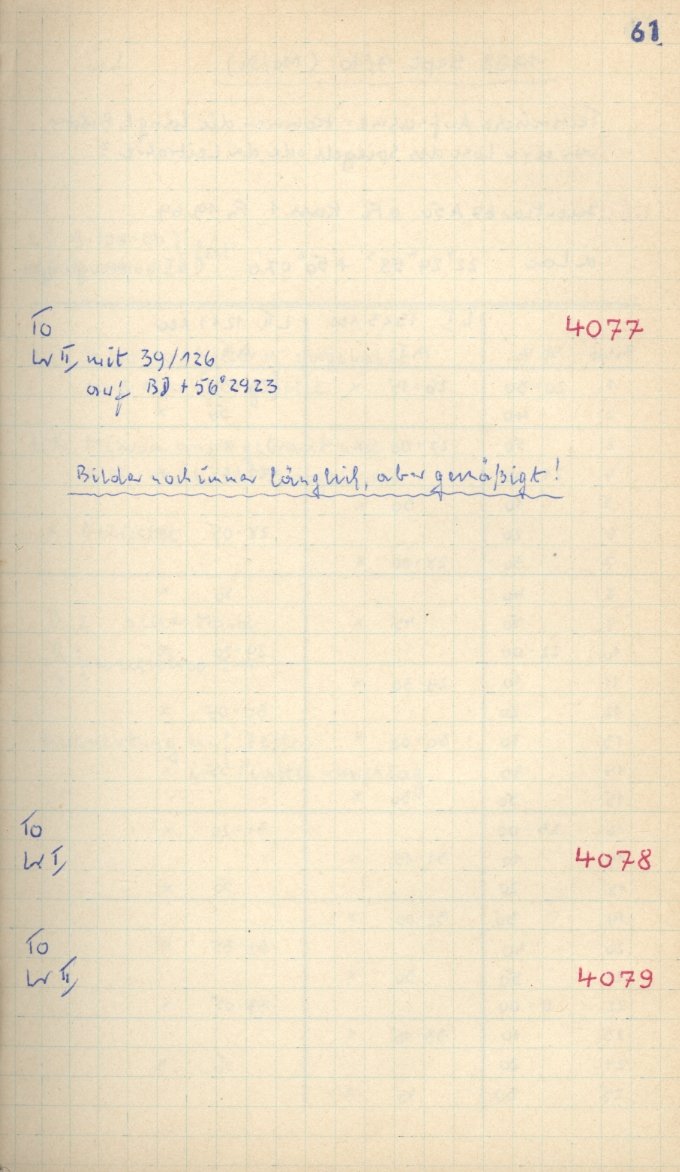 61
To
4077
Lw II, mit 39/126
auf BD + 56° 2923
Bilder noch immer länglich, aber gemäßigt!
To
Lw I,
4078
To
Lw II,
4079